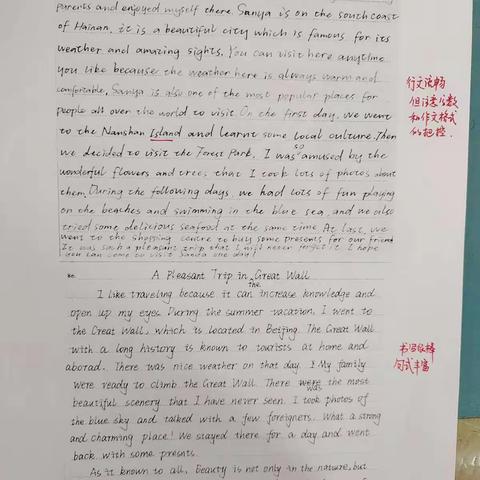 parents and enjoyed myself there. Sanya is on the south coast
of Hainan. it is a beautiful city which is famous for its
weather and amazing sights. You can visit here anytime
you like because the weather here is always warm and
comfortable. Sanya is also one of the most popular places for
people all over the world to visit. On the first day, we went
to the Nanshan Island and learnt some local culture. Then
we decided to visit the Forest Park. I was so amused by the
wonderful flowers and trees that I took lots of photos about
them. During the following days, we had lots of fun playing
on the beaches and swimming in the blue sea, and we also
tried some delicious seafood at the same time. At last, we
went to the shopping centre to buy some presents for our friend
It was such a pleasant trip that I will never forget it. I hope
you can come to visit Sanya one day!
行文流畅
但注意
和作文格式
的把控.
A Pleasant Trip in the Great Wall
I like traveling because it can increase knowledge and
open up my eyes. During the summer vacation, I went to
the Great Wall, which is located in Beijing. The Great Wall
with a long history is known to tourists at home and
aborad. There was nice weather on that day. My family
were ready to climb the Great Wall. There were was the most
beautiful scenery that I have never seen. I took photos of
the blue sky and talked with a few foreigners. What a strong
and charming place! We stayed there for a day and went
back with some presnts.
As it known to all, Beauty is not only in the nature, but
书写很棒
句式丰富